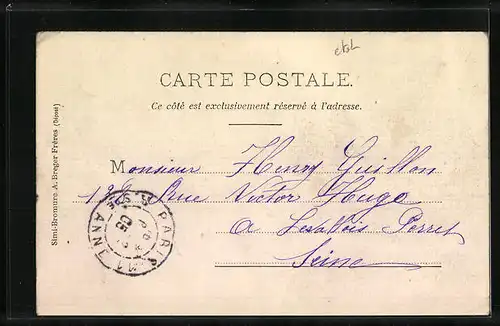 CARTE POSTALE.
Ce côté est exclusivement réservé à l'adresse.
Monsieur Henry Guillon
Rue Victor Hugo
a Levallois Perret
Seine
PARIS
ANNE
05
Simi-Bromure, A. Breger Frères